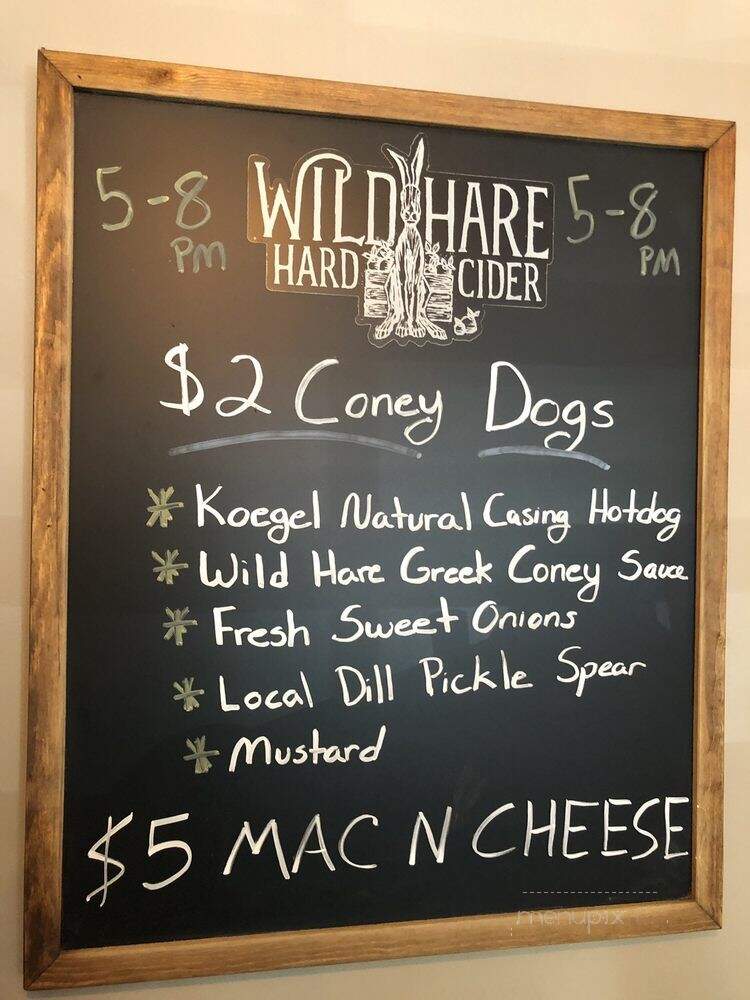 5-8 PM
WILD HARE
HARD CIDER
5-8 PM
$2 Coney Dogs
* Koegel Natural Casing Hotdog
* Wild Hare Greek Coney Sauce
* Fresh Sweet Onions
* Local Dill Pickle Spear
* Mustard
$5 MAC N CHEESE
menupix